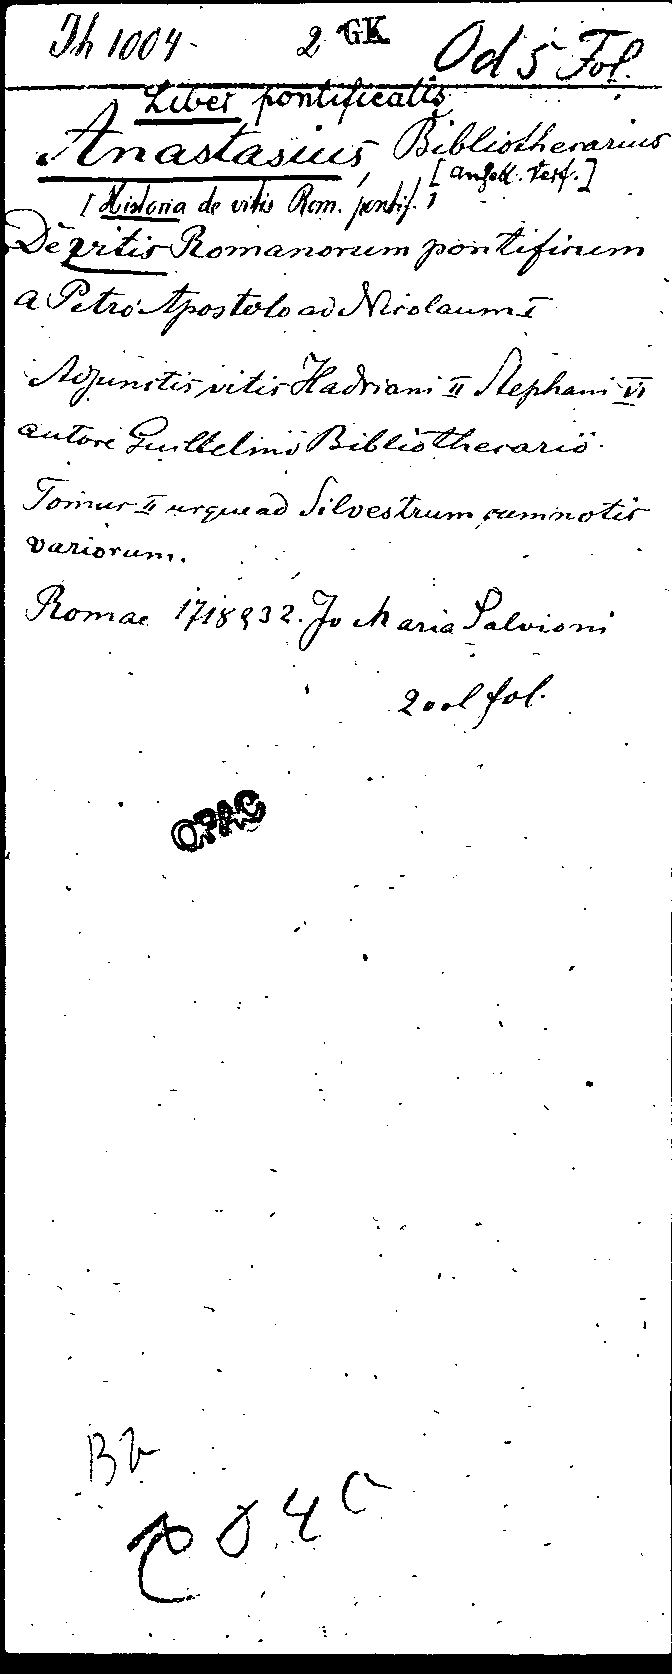 Th 1004. 2 GK Od 5 Fol.
Liber pontificalis
Anastasius, Bibliothecarius
[angebl. Verf.]
[Historia de vitis Rom. pontif.]
De vitis Romanorum pontificum
a Petro Apostolo ad Nicolaum I
Adjunctis vitis Hadriani II Stephani VI
autore Guillelmo Bibliothecario.
Tomus II usque ad Silvestrum cum notis
variorum.
Romae 1718 & 32. Jo Maria Salvioni
2 vol fol.
OPAC